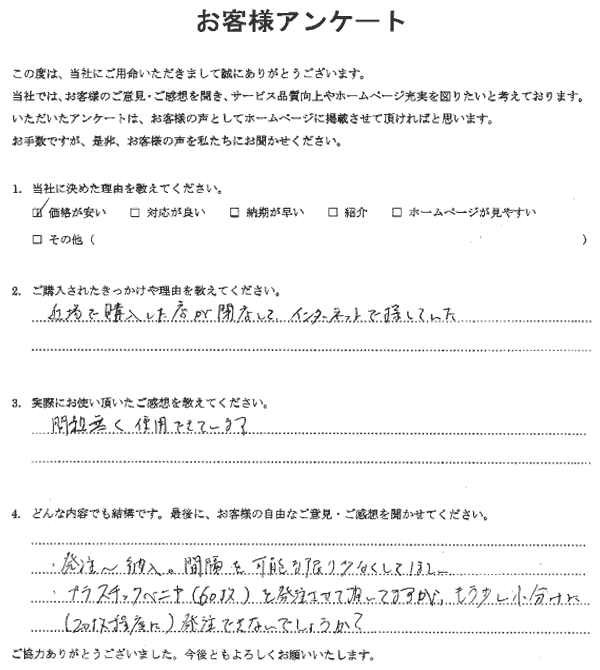 お客様アンケート
この度は、当社にご用命いただきまして誠にありがとうございます。
当社では、お客様のご意見・ご感想を聞き、サービス品質向上やホームページ充実を図りたいと考えております。
いただいたアンケートは、お客様の声としてホームページに掲載させて頂ければと思います。
お手数ですが、是非、お客様の声を私たちにお聞かせください。
1. 当社に決めた理由を教えてください。
☑ 価格が安い □ 対応が良い □ 納期が早い □ 紹介 □ ホームページが見やすい
□ その他（ ）
2. ご購入されたきっかけや理由を教えてください。
近場で購入した店が閉店して、インターネットで探していた
3. 実際にお使い頂いたご感想を教えてください。
問題無く使用できています
4. どんな内容でも結構です。最後に、お客様の自由なご意見・ご感想を聞かせてください。
・発注～納入の間隔を可能な限り少なくしてほしい
・プラスチックベニヤ（60枚）を発注させて頂いてますが、もう少し小分けに
（20枚程度に）発注できないでしょうか？
ご協力ありがとうございました。今後ともよろしくお願いいたします。